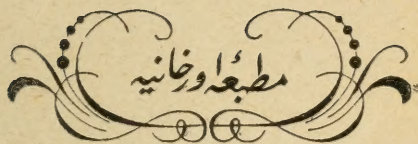 مطبعهٔ اورخانیه